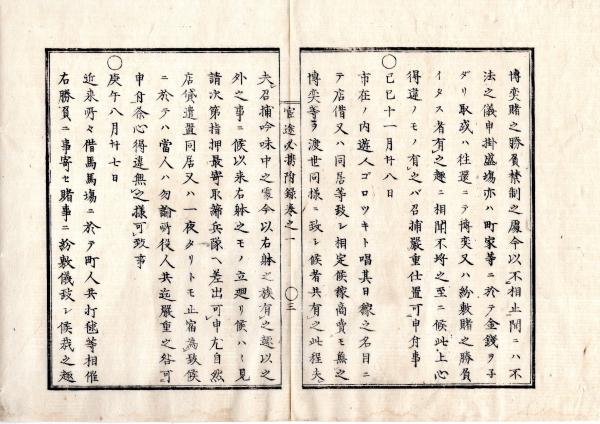 博奕賭之勝負禁制之處今以不相止聞ニハ不
法之儀申掛盛塲亦ハ町家等ニ於テ金銭ヲ子
ダリ取或ハ往還ニテ博奕又ハ紛敷賭之勝負
イタス者有之趣ニ相聞不埓之至ニ候此上心
得違ノモノ有之バ召捕嚴重仕置可申付事
〇
己巳十一月廿八日
市在ノ内遊人ゴロツキト唱其日稼之名目ニ
テ店借又ハ同居等致シ相定候稼商賣モ無之
博奕等ヲ渡世同様ニ致シ候者共有之此程夫
官途必携附録巻之一
〇三
夫召捕吟味中之處今以右躰之族有之趣以之
外之事ニ候以来右躰之モノ立廻リ候ハヽ見
請次第指押最寄取締兵隊ヘ差出可申尤自然
店貸遣置同居又ハ一夜タリトモ止宿為致候
ニ於テハ當人ハ勿論所役人共迄嚴重之咎可
申付条心得違無之様可致事
〇
庚午八月廿七日
近来所々借馬馬塲ニ於テ町人共打毬等相催
右勝負ニ事寄セ賭事ニ紛敷儀致シ候哉之趣